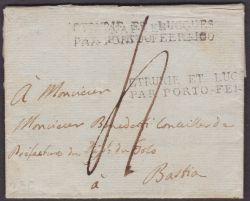 ETRURIE ET LUCQUES
PAR PORTO-FERRAJO
ETRURIE ET LUC
PAR PORTO-FER
À Monsieur
Monsieur Benedetti Conseiller de
Préfecture du
à Bastia